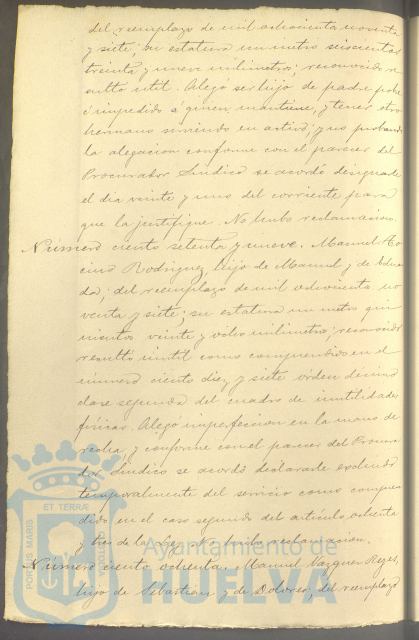 del reemplazo de mil ochocientos noventa
y siete; su estatura un metro seiscientos
treinta y nueve milimetros; reconocido re-
sultó util. Alegó ser hijo de padre pobre
é impedido á quien mantiene, y tener otro
hermano sirviendo en activo; y no probando
la alegacion conforme con el parecer del
Procurador Sindico se acordó designarle
el dia veinte y uno del corriente para
que la justifique. No hubo reclamacion.
Número ciento setenta y nueve. Manuel
Rodriguez, hijo de Manuel y de
del reemplazo de mil ochocientos no-
venta y siete; su estatura un metro quin-
ientos veinte y ocho milimetros; reconocido
resultó inutil como comprendido en el
número ciento diez y siete órden décimo
clase segunda del cuadro de inutilidades
físicas. Alegó imperfeccion en la mano de-
recha, y conforme con el parecer del Procura-
dor Sindico se acordó declararle excluido
temporalmente del servicio como compren-
dido en el caso segundo del artículo ochenta
y tres de la Ley. No hubo reclamacion.
Número ciento ochenta. Manuel Vazquez Reyes,
hijo de Sebastian y de Dolores, del reemplazo
PORTUS MARIS ET TERRÆ CUSTODIA
Ayuntamiento de
HUELVA